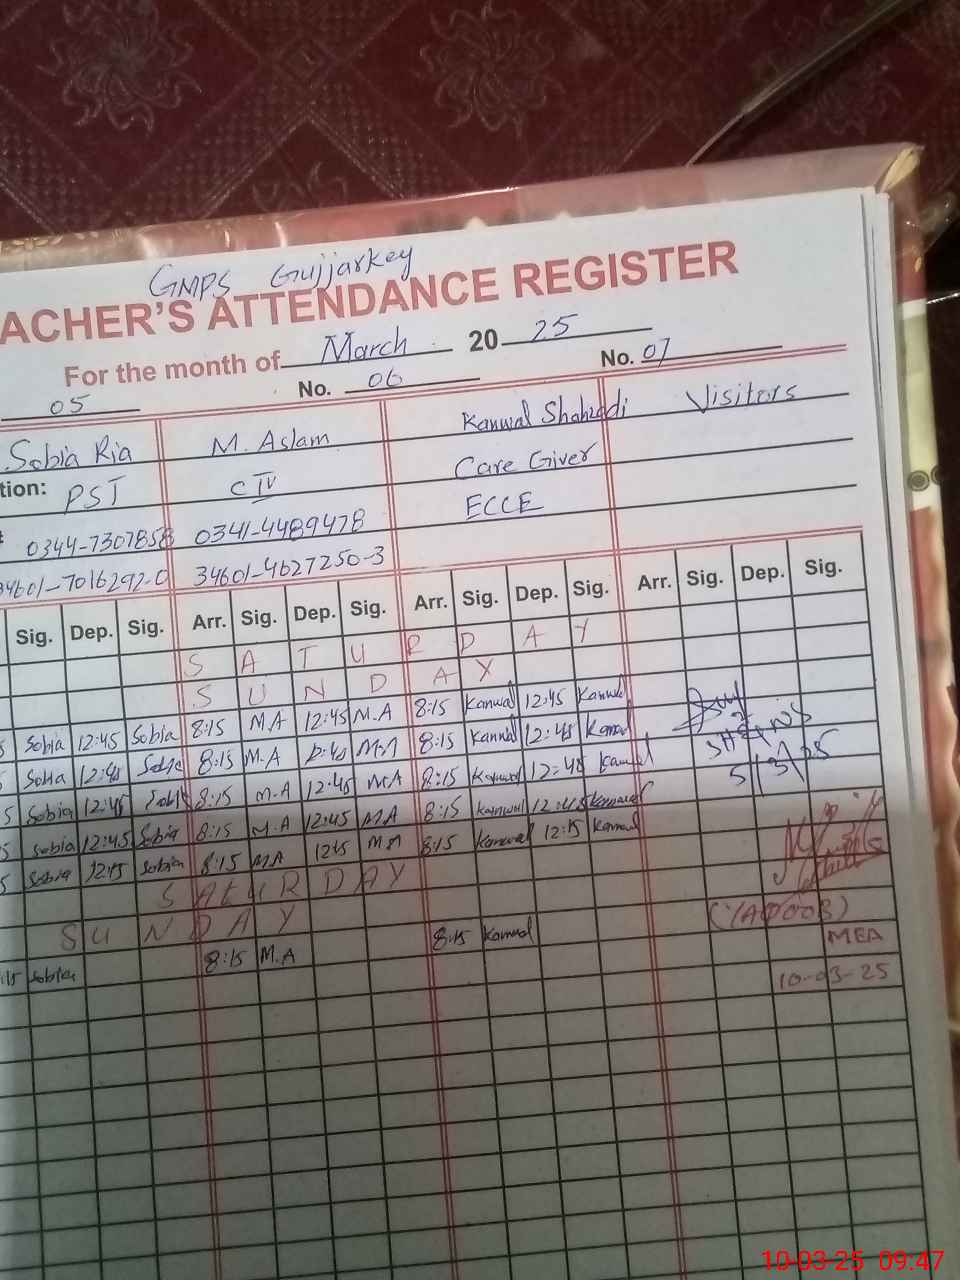 GMPS Gujjarkey
ACHER'S ATTENDANCE REGISTER
For the month of March 2025
05 No. 06 No. 07
Sobia Ria M. Aslam Kanwal Shahzadi Visitors
tion: PST C IV Care Giver
0344-7307858 0341-4489478 ECCE
34601-7016292-0 34601-4627250-3
Sig. Dep. Sig. Arr. Sig. Dep. Sig. Arr. Sig. Dep. Sig. Arr. Sig. Dep. Sig.
S A T U R D A Y
S U N D A Y
5 Sobia 12:45 Sobia 8:15 M.A 12:45 M.A 8:15 Kanwal 12:45 Kanwal
Sobia 12:45 Sobia 8:15 M.A 12:45 M.A 8:15 Kanwal 12:45 Kanwal
5 Sobia 12:45 Sobia 8:15 M.A 12:45 M.A 8:15 Kanwal 12:45 Kanwal 5/3/25
5 Sobia 12:45 Sobia 8:15 M.A 12:45 M.A 8:15 Kanwal 12:45 Kanwal
5 Sobia 12:45 Sobia 8:15 M.A 12:45 M.A 8:15 Kanwal 12:15 Kanwal
S A T U R D A Y
S U N D A Y
(YAQOOB)
:15 Sobia 8:15 M.A 8:15 Kanwal MEA
10-03-25
10-03-25 09:47